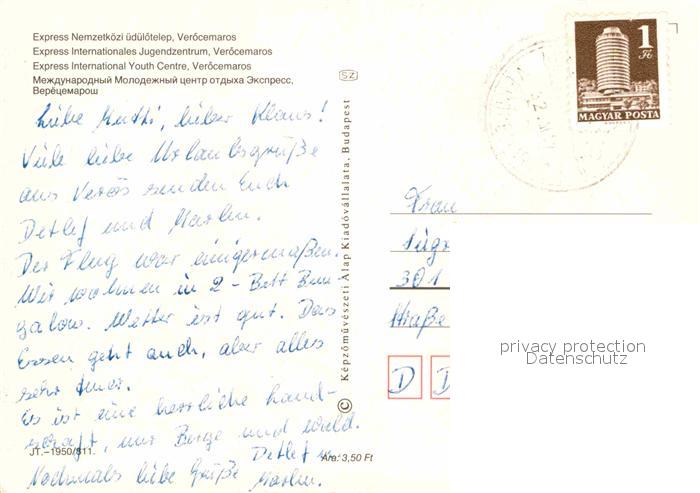 Express Nemzetközi üdülőtelep, Verőcemaros
Express Internationales Jugendzentrum, Verőcemaros
Express International Youth Centre, Verőcemaros
Международный Молодежный центр отдыха Экспресс,
Верёцемарош
Liebe Mutti, lieber Klaus!
Viele liebe Urlaubsgrüße
aus Verös senden Euch
Detlef und Marlen.
Der Flug war einigermaßen.
Wir wohnen in 2-Bett Bun
galow. Wetter ist gut. Das
Essen geht auch, aber alles
sehr teuer.
Es ist eine herrliche Land-
schaft, nur Berge und Wald.
Nochmals liebe Grüße Detlef u.
Marlen.
JT.–1950/811.
Ára: 3,50 Ft
Képzőművészeti Alap Kiadóvállalata, Budapest
SZ
1 Ft
MAGYAR POSTA
Frau
301
Straße
D D
privacy protection
Datenschutz